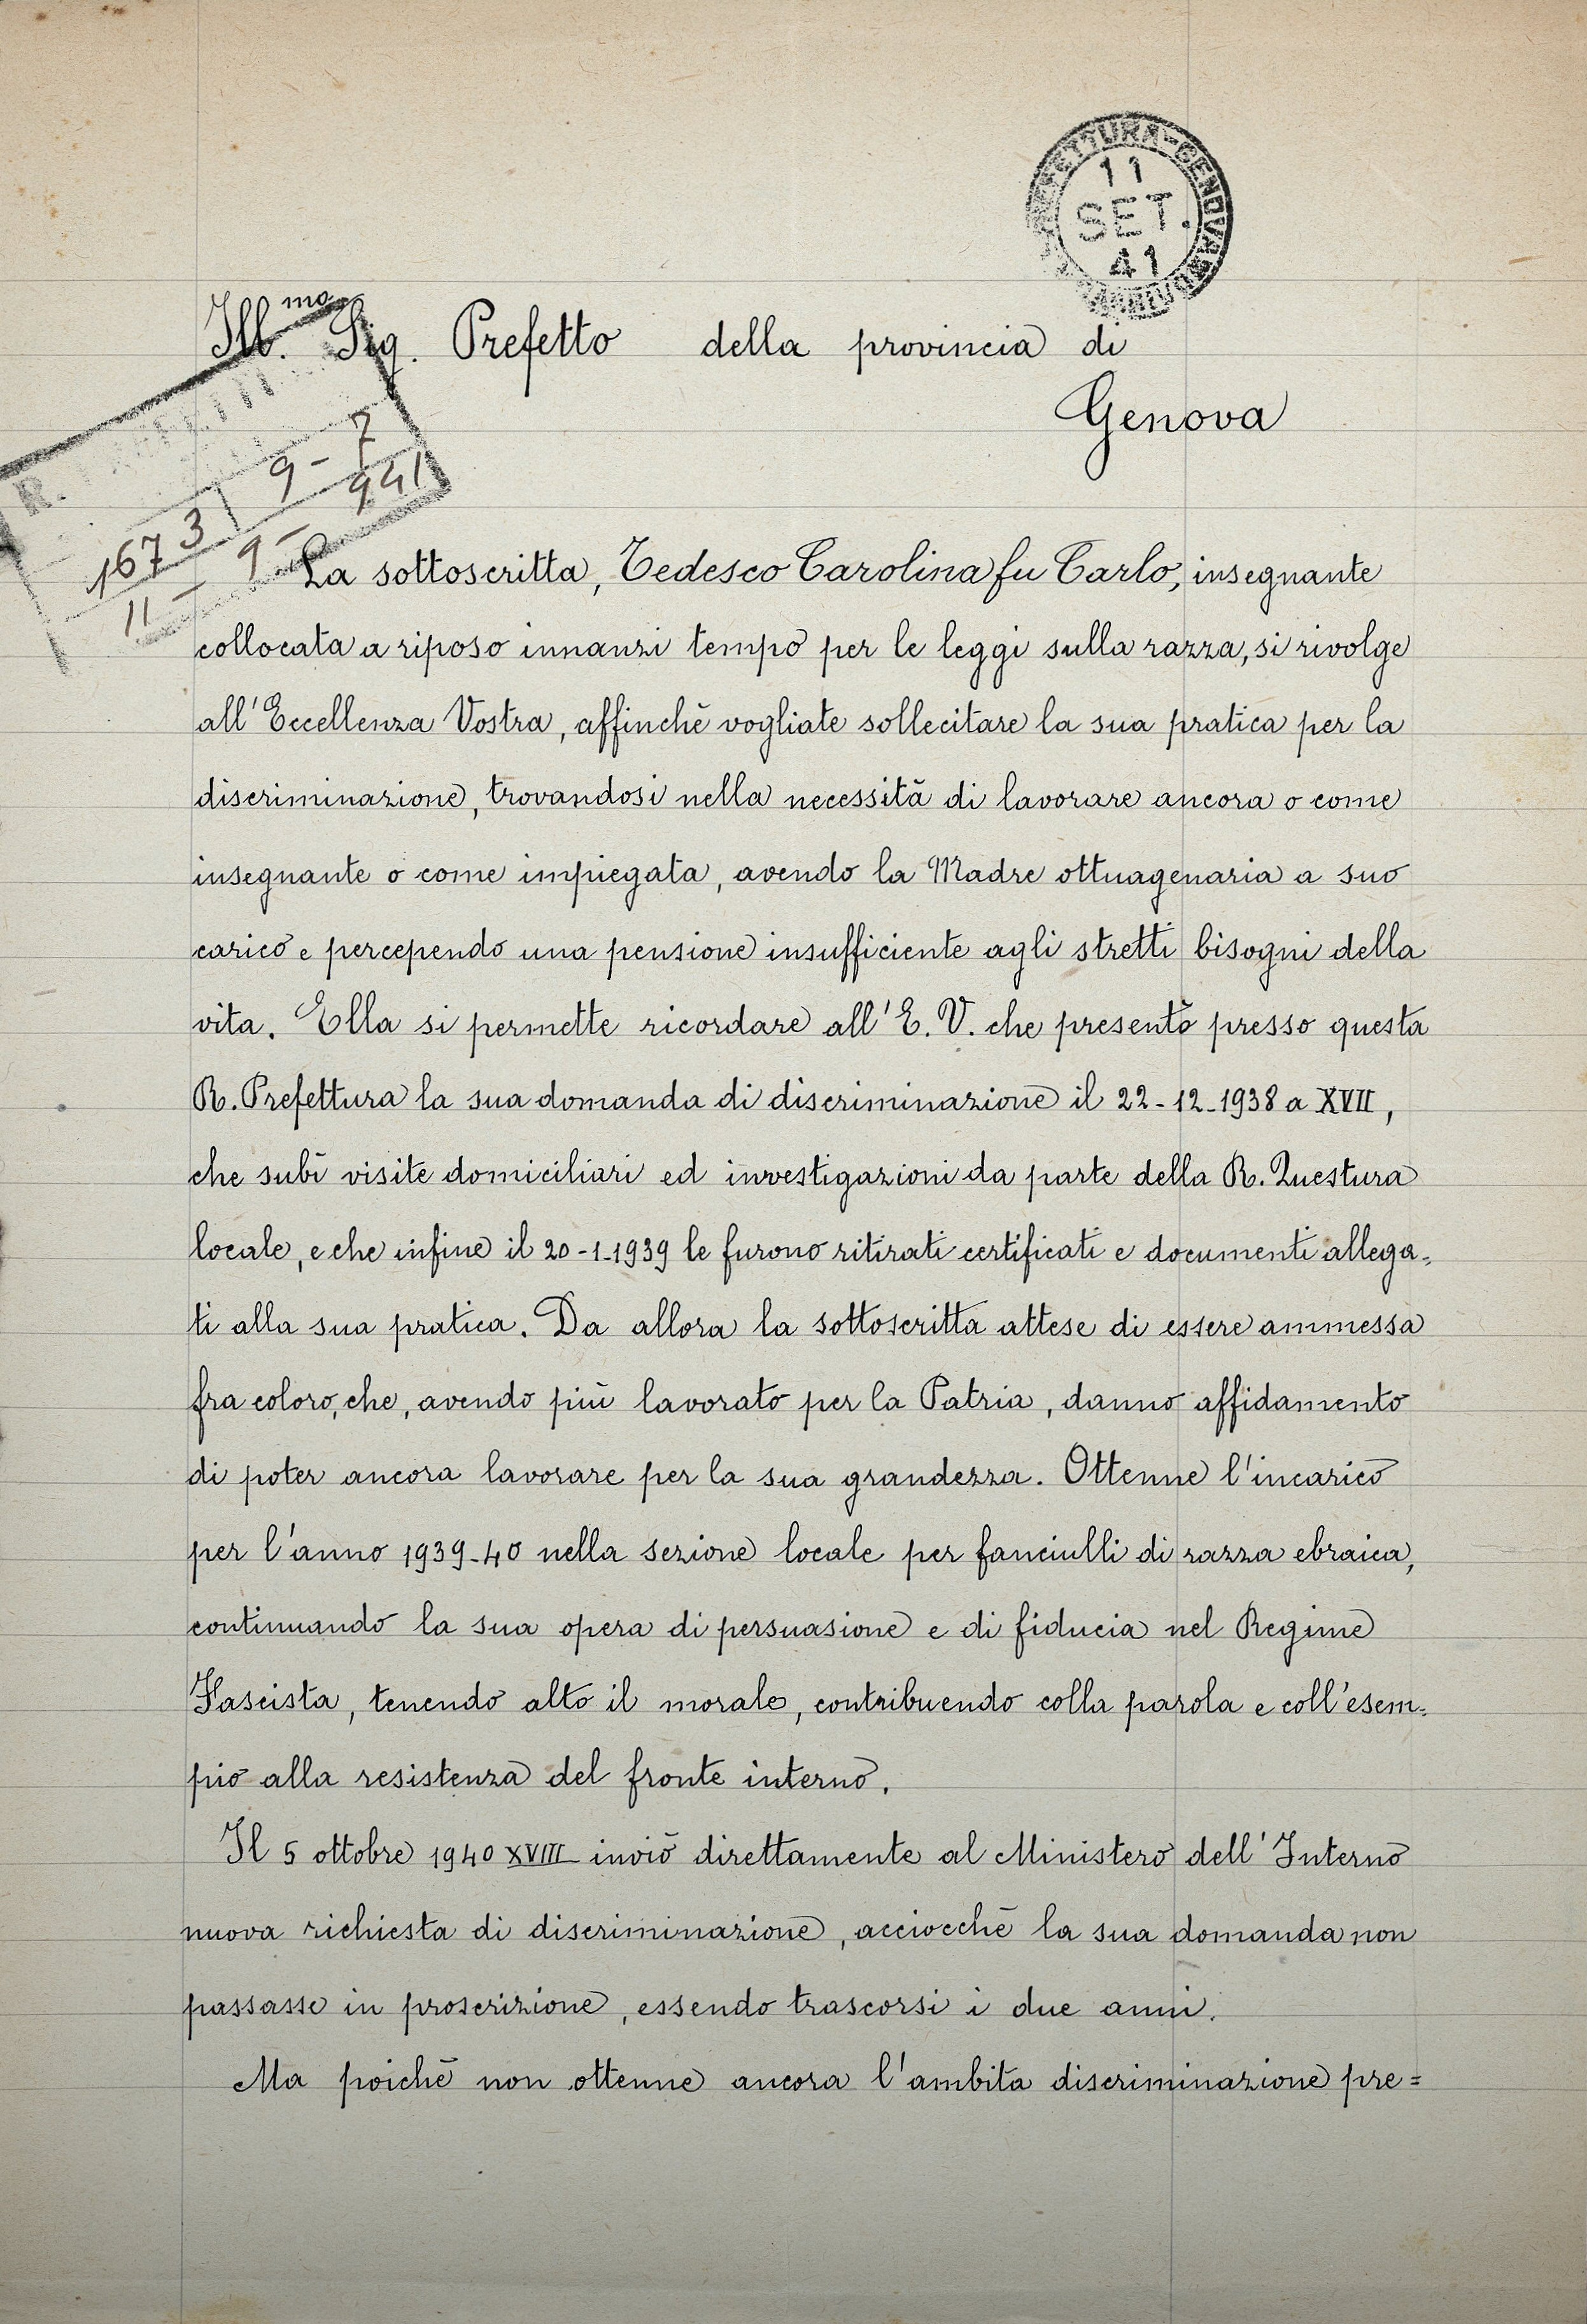 PREFETTURA-GENOVA
11
SET.
41
Ill.mo Sig. Prefetto della provincia di
Genova
R.
9-7
1673 9- 941
11-
La sottoscritta, Tedesco Carolina fu Carlo, insegnante
collocata a riposo innanzi tempo per le leggi sulla razza, si rivolge
all'Eccellenza Vostra, affinchè vogliate sollecitare la sua pratica per la
discriminazione, trovandosi nella necessità di lavorare ancora o come
insegnante o come impiegata, avendo la Madre ottuagenaria a suo
carico e percependo una pensione insufficiente agli stretti bisogni della
vita. Ella si permette ricordare all'E. V. che presentò presso questa
R. Prefettura la sua domanda di discriminazione il 22-12-1938 a XVII,
che subì visite domiciliari ed investigazioni da parte della R. Questura
locale, e che infine il 20-1-1939 le furono ritirati certificati e documenti allega=
ti alla sua pratica. Da allora la sottoscritta attese di essere ammessa
fra coloro, che, avendo più lavorato per la Patria, danno affidamento
di poter ancora lavorare per la sua grandezza. Ottenne l'incarico
per l'anno 1939-40 nella sezione locale per fanciulli di razza ebraica,
continuando la sua opera di persuasione e di fiducia nel Regime
Fascista, tenendo alto il morale, contribuendo colla parola e coll'esem=
pio alla resistenza del fronte interno.
Il 5 ottobre 1940 XVIII inviò direttamente al Ministero dell'Interno
nuova richiesta di discriminazione, acciocchè la sua domanda non
passasse in proscrizione, essendo trascorsi i due anni.
Ma poichè non ottenne ancora l'ambita discriminazione pre=